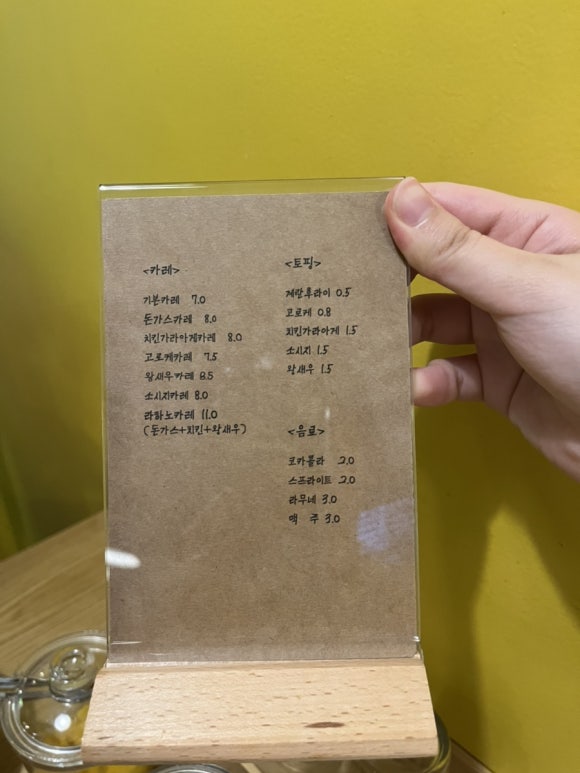 <카레>
기본카레 7.0
돈가스카레 8.0
치킨가라아게카레 8.0
고로케카레 7.5
왕새우카레 8.5
소시지카레 8.0
라하노카레 11.0
(돈가스+치킨+왕새우)
<토핑>
계란후라이 0.5
고로케 0.8
치킨가라아게 1.5
소시지 1.5
왕새우 1.5
<음료>
코카콜라 2.0
스프라이트 2.0
라무네 3.0
맥 주 3.0